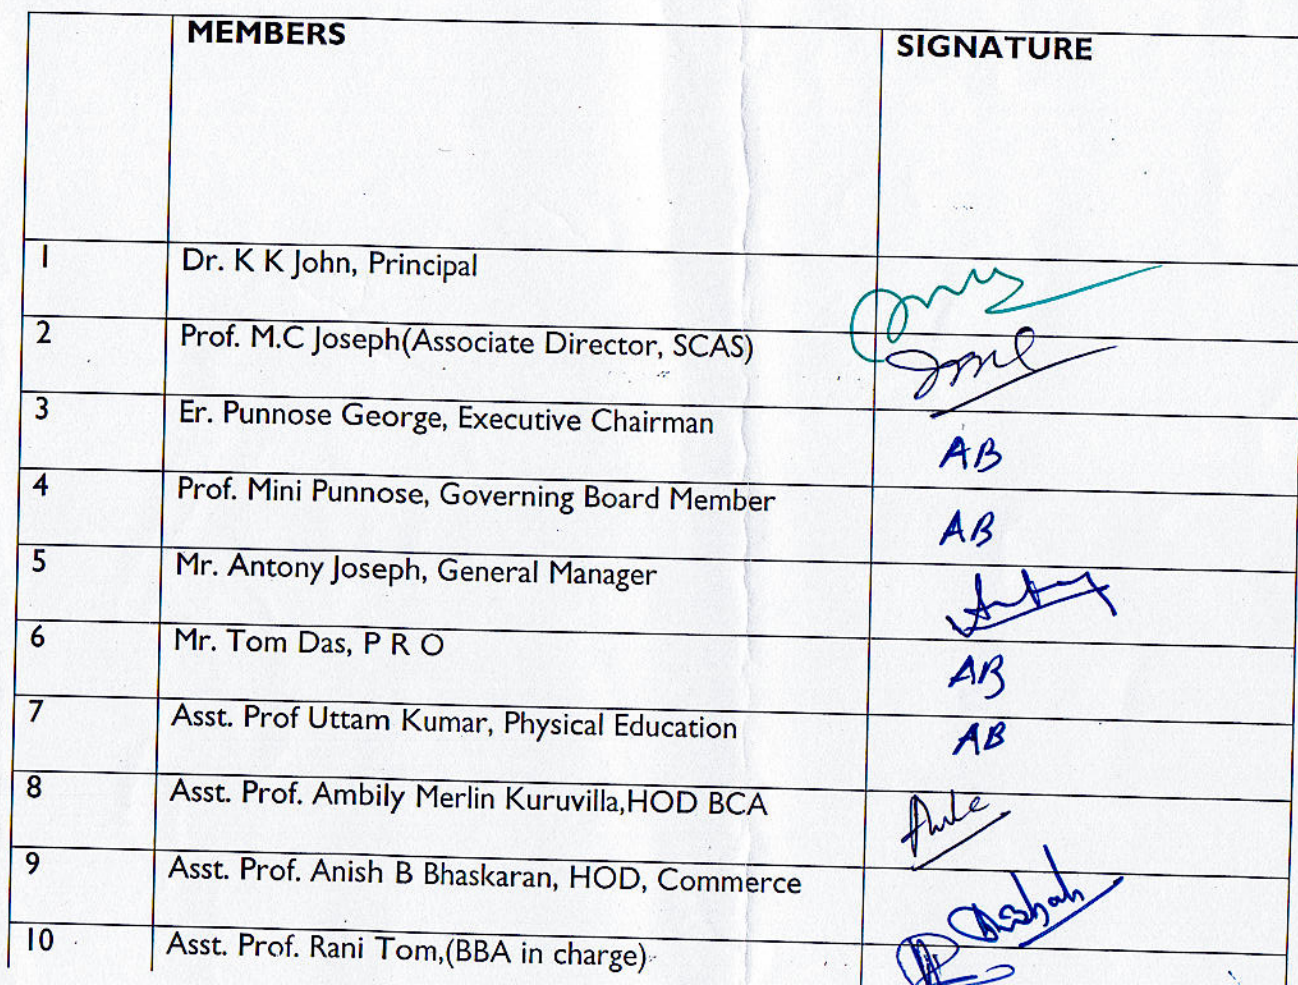 MEMBERS SIGNATURE
1 Dr. K K John, Principal
2 Prof. M.C Joseph(Associate Director, SCAS)
3 Er. Punnose George, Executive Chairman AB
4 Prof. Mini Punnose, Governing Board Member AB
5 Mr. Antony Joseph, General Manager
6 Mr. Tom Das, P R O AB
7 Asst. Prof Uttam Kumar, Physical Education AB
8 Asst. Prof. Ambily Merlin Kuruvilla,HOD BCA
9 Asst. Prof. Anish B Bhaskaran, HOD, Commerce
10 Asst. Prof. Rani Tom,(BBA in charge)